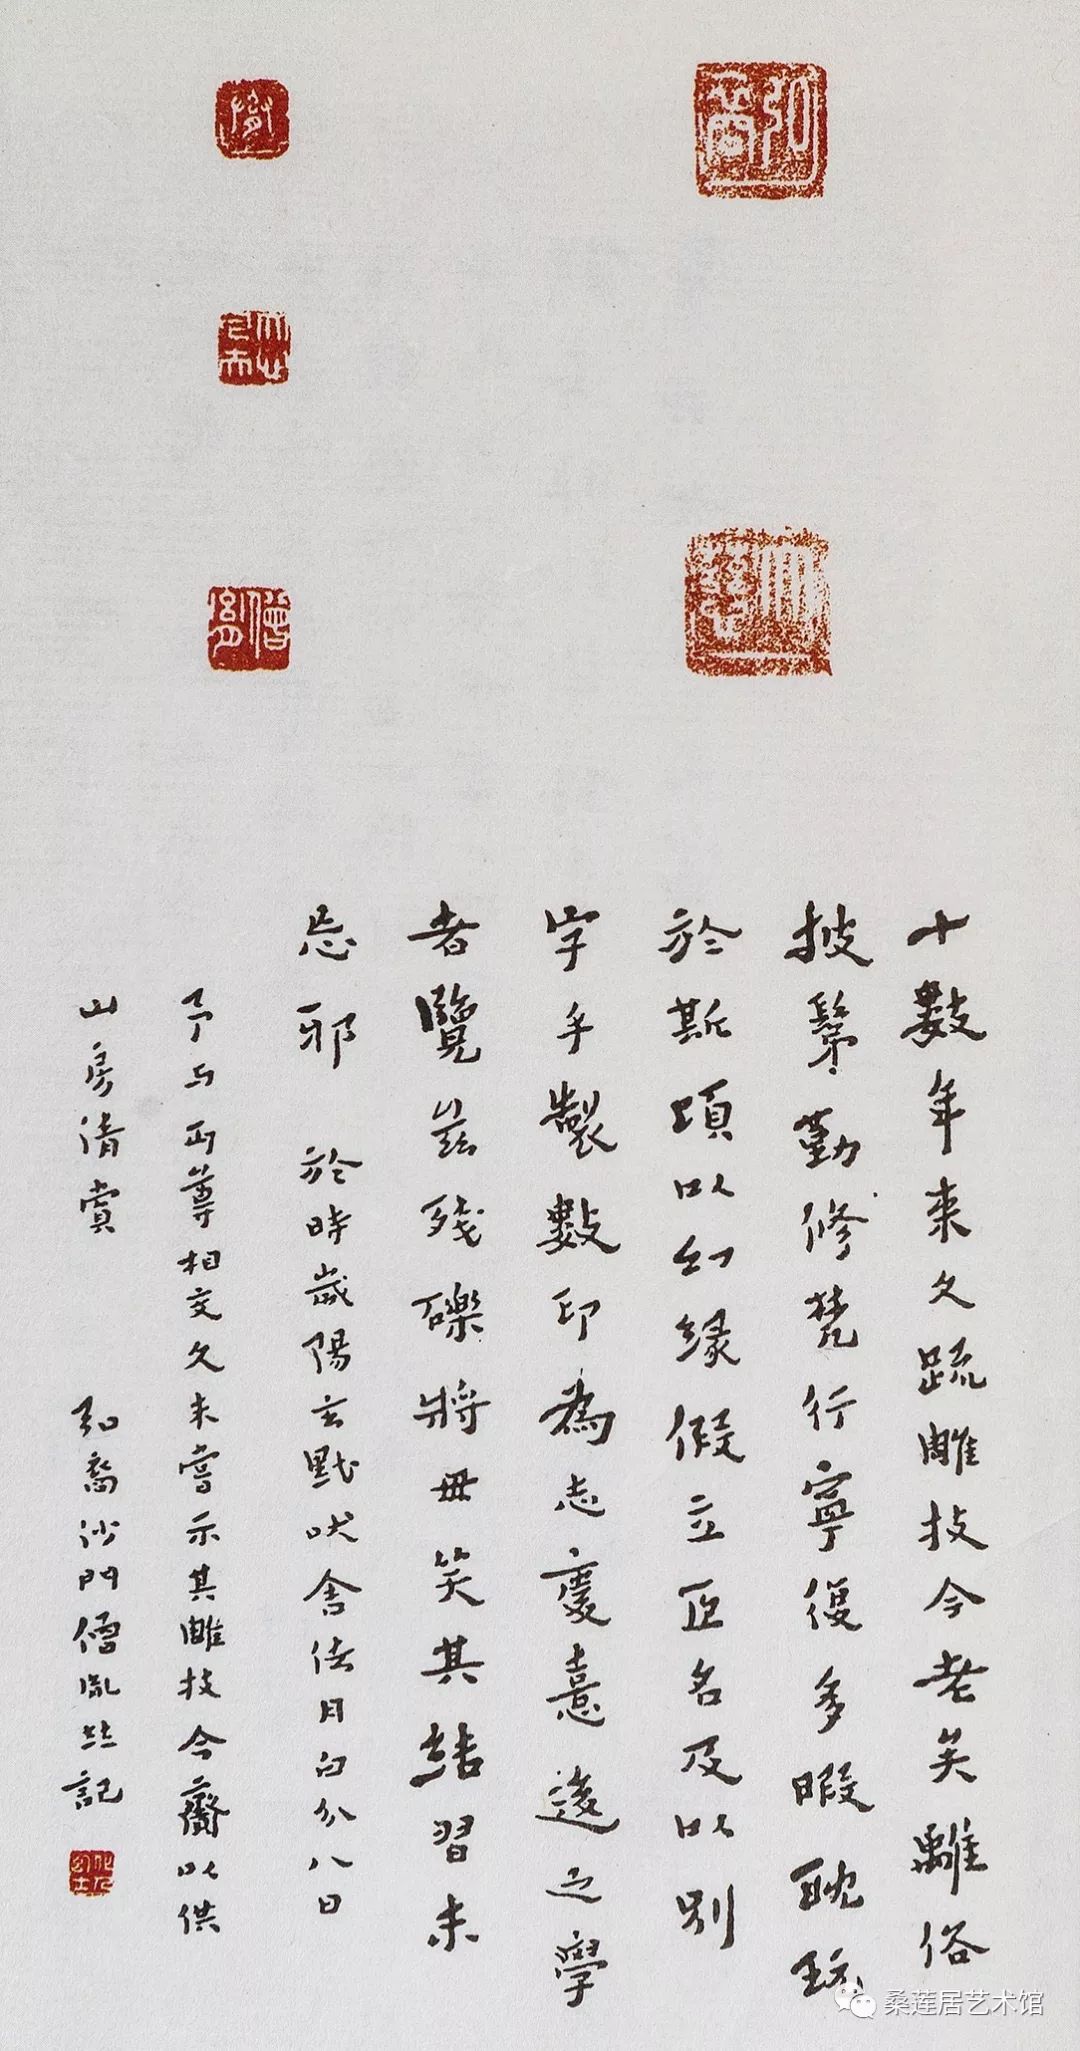 十數年來久疏雕技今老矣離俗
披鬀勤修梵行寧復多暇耽玩
於斯頃以幻緣假立臣名及以別
字手製數印為志慶憙後之學
者覽茲殘礫將毋笑其結習未
忘邪 於時歲陽玄黓吠舍佉月白分八日
予与丏尊相交久未嘗示其雕技今齎以供
山房清賞 弘裔沙門僧胤並記
桑莲居艺术馆